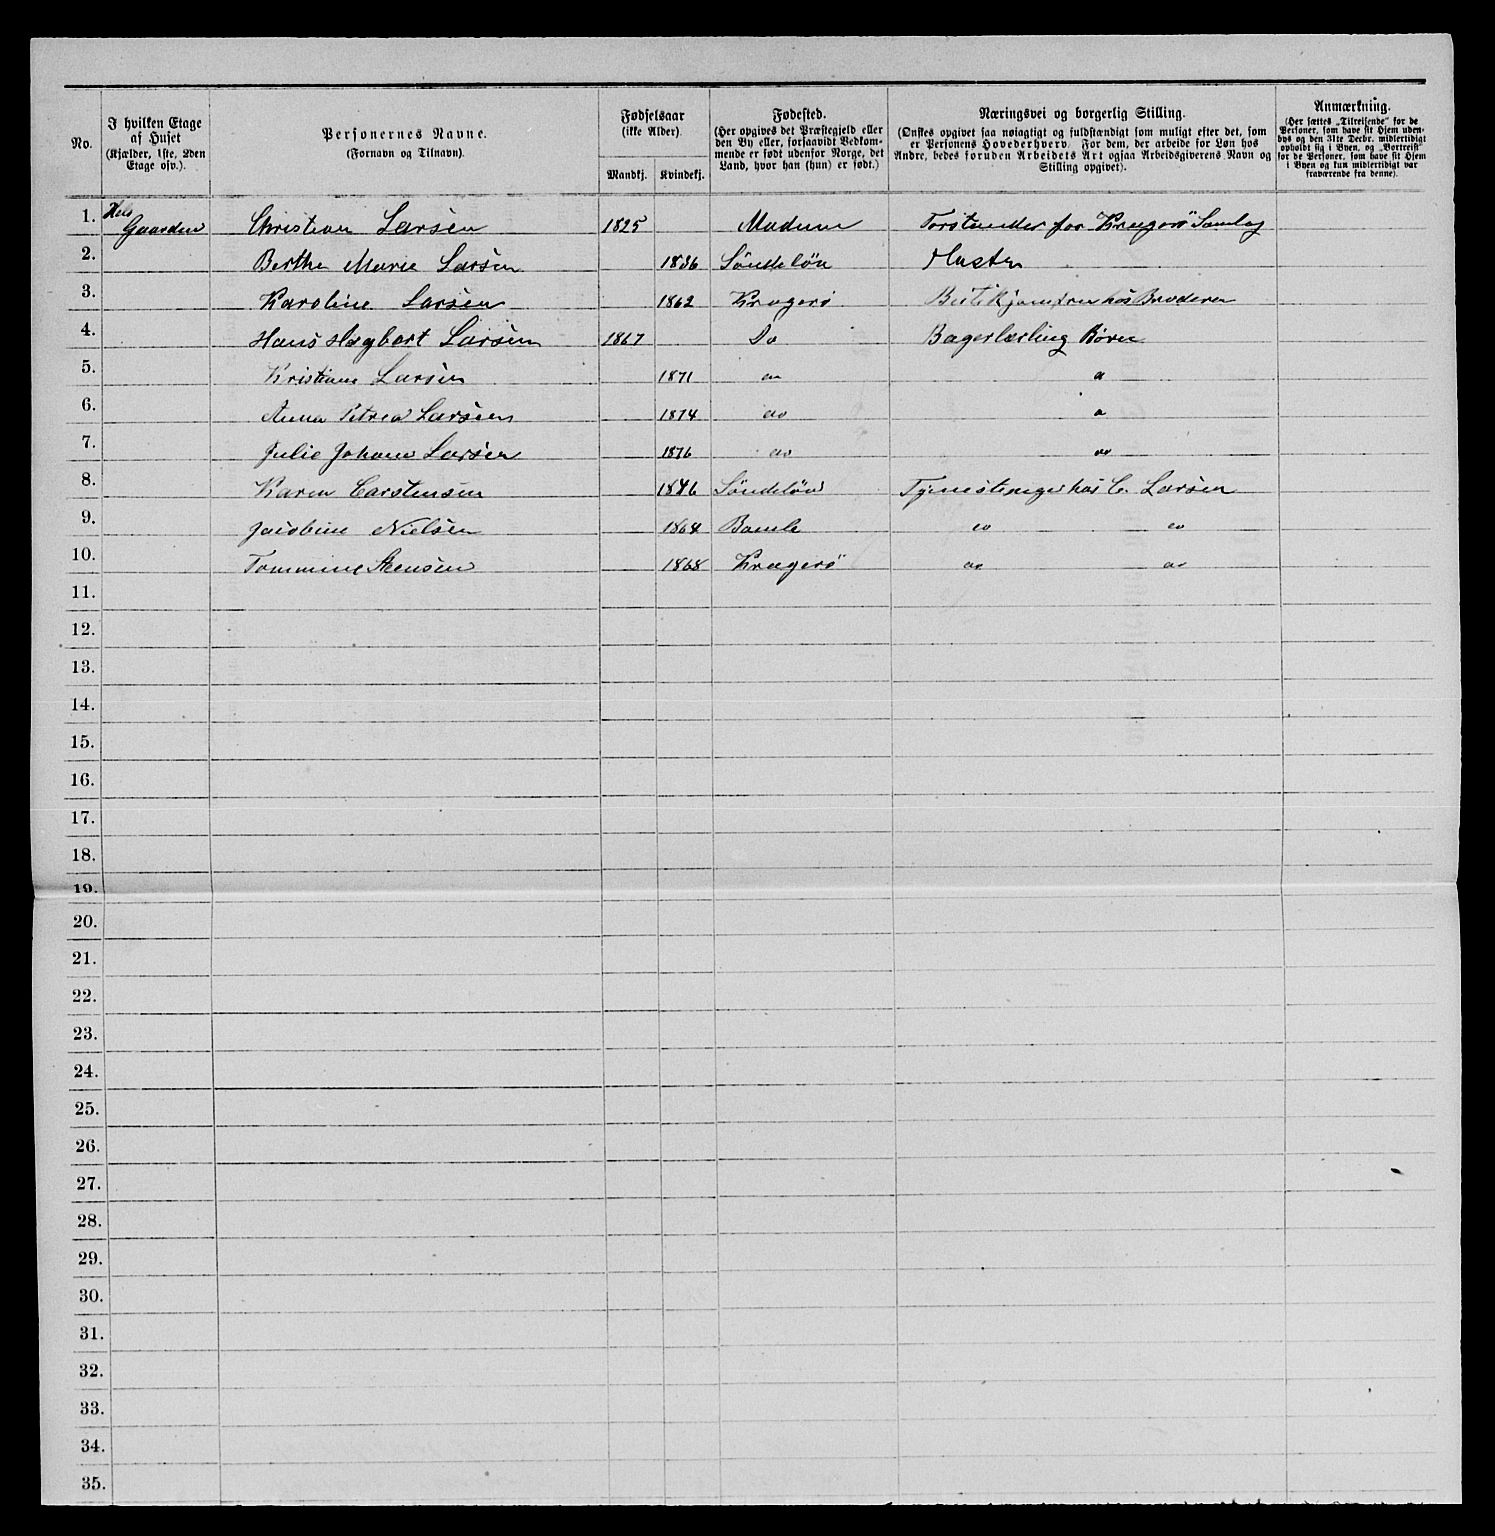 No.
I hvilken Etage af Huset (Kjælder, 1ste, 2den Etage osv.).
Personernes Navne. (Fornavn og Tilnavn).
Fødselsaar (ikke Alder).
Mandkj. Kvindekj.
Fødested. (Her opgives det Præstegjeld eller den By eller, forsaavidt Vedkommende er født udenfor Norge, det Land, hvor han (hun) er født.)
Næringsvei og borgerlig Stilling. (Ønskes opgivet saa nøiagtigt og fuldstændigt som muligt efter det, som er Personens Hovederhverv. For dem, der arbeide for Løn hos Andre, bedes foruden Arbeidets Art ogsaa Arbeidsgiverens Navn og Stilling opgivet).
Anmærkning. (Her sættes „Tilreisende" for de Personer, som have sit Hjem udenbys og den 31te Decbr. midlertidigt opholdt sig i Byen, og „Bortreist" for de Personer, som have sit Hjem i Byen og kun midlertidigt var fraværende fra denne).
1. Gaarden Christian Larsen 1825 Modum Forstander for Kragerø Samlag
2. Berthe Marie Larsen 1836 Søndeløv Hustru
3. Karoline Larsen 1862 Kragerø hos Broderen
4. Hans Hagbart Larsen 1867 Do Bagerlærling Børn
5. Kristiane Larsen 1871 do
6. Anna Petrea Larsen 1874 do
7. Julie Johane Larsen 1876 do do
8. Karen Carstensen 1846 Søndeløv Tjenestepige hos C. Larsen
9. Jacobine Nielsen 1864 Bamle do do
10. Tommine 1868 Kragerø do do
11.
12.
13.
14.
15.
16.
17.
18.
19.
20.
21.
22.
23.
24.
25.
26.
27.
28.
29.
30.
31.
32.
33.
34.
35.